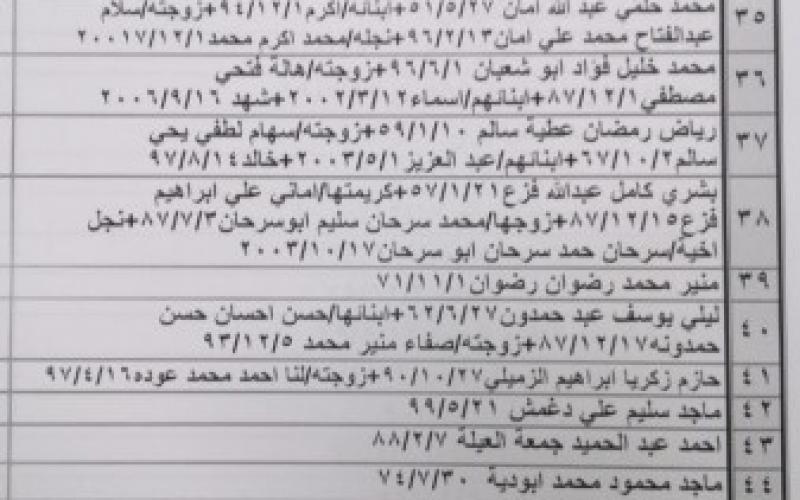 ٣٥ محمد حلمي عبد الله امان ٥١/٥/٢٧+ابنائه/اكرم٩٤/١٢/١+زوجته/سلام
عبدالفتاح محمد علي امان٩٦/٢/١٣+نجله/محمد اكرم محمد٢٠٠١٧/١٢/١
٣٦ محمد خليل فؤاد ابو شعبان ٩٦/٦/١+زوجته/هالة فتحي
مصطفي٨٧/١٢/١+ابنائهم/اسماء٢٠٠٢/٣/١٢+شهد ٢٠٠٦/٩/١٦
٣٧ رياض رمضان عطية سالم ٥٩/١/١٠+زوجته/سهام لطفي يحي
سالم٦٧/١٠/٢+ابنائهم/عبد العزيز٢٠٠٣/٥/١+خالد٩٧/٨/١٤
٣٨ بشري كامل عبدالله فزع٥٧/١/٢١+كريمتها/اماني علي ابراهيم
فزع٨٧/١٢/١٥+زوجها/محمد سرحان سليم ابوسرحان٨٧/٧/٣+نجل
اخية/سرحان حمد سرحان ابو سرحان٢٠٠٣/١٠/١٧
٣٩ منير محمد رضوان رضوان٧١/١١/١
٤٠ ليلي يوسف عبد حمدون٦٢/٦/٢٧+ابنائها/حسن احسان حسن
حمدونه٨٧/١٢/١٧+زوجته/صفاء منير محمد ٩٣/١٢/٥
٤١ حازم زكريا ابراهيم الزميلي٩٠/١٠/٢٧+زوجته/لنا احمد محمد عوده٩٧/٤/١٦
٤٢ ماجد سليم علي دغمش ٩٩/٥/٢١
٤٣ احمد عبد الحميد جمعة العيلة ٨٨/٢/٧
٤٤ ماجد محمود محمد ابودية ٧٤/٧/٣٠